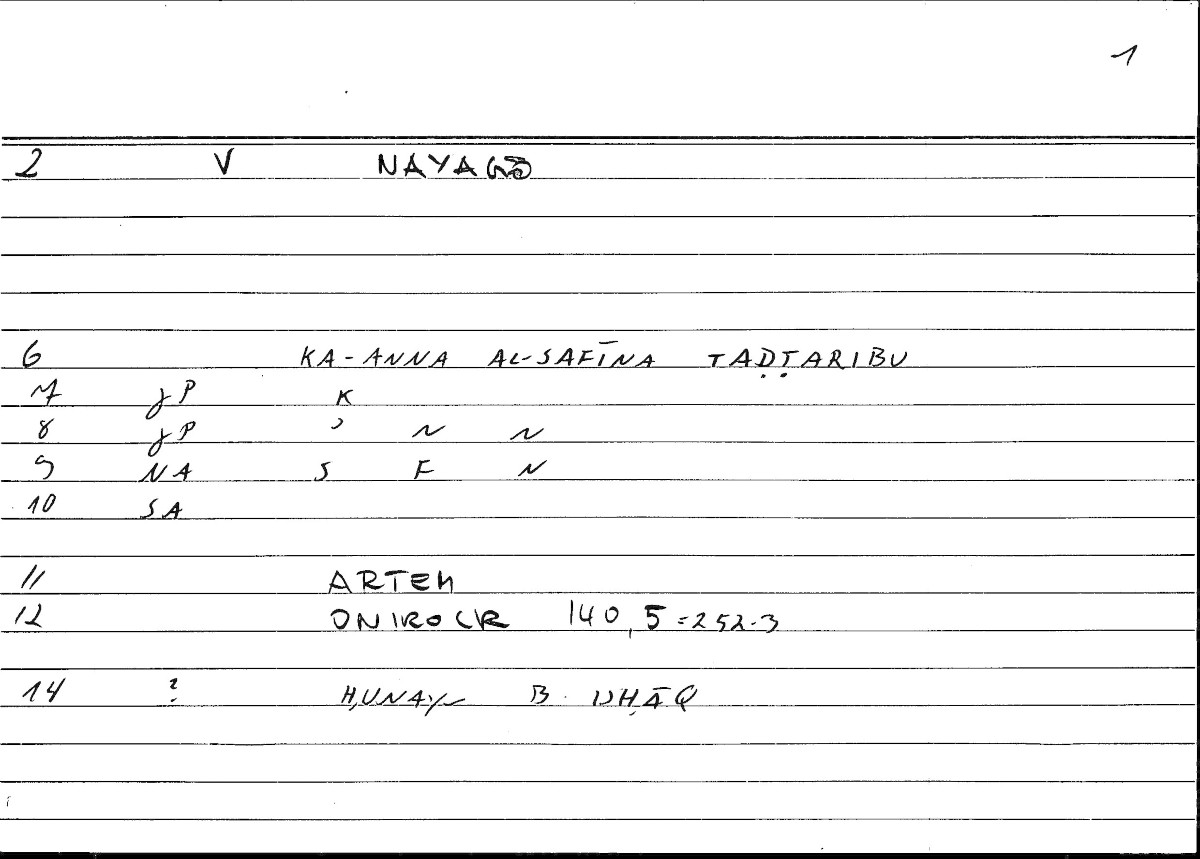 1
2 V NAYAGŌ
6 KA-ANNA AL-SAFĪNA TAḌṬARIBU
7 γP K
8 γP ʾ N N
9 NA S F N
10 SA
11 ARTEM
12 ONIROCR 140,5=252.3
14 ? ḤUNAYN B. ISḤĀQ